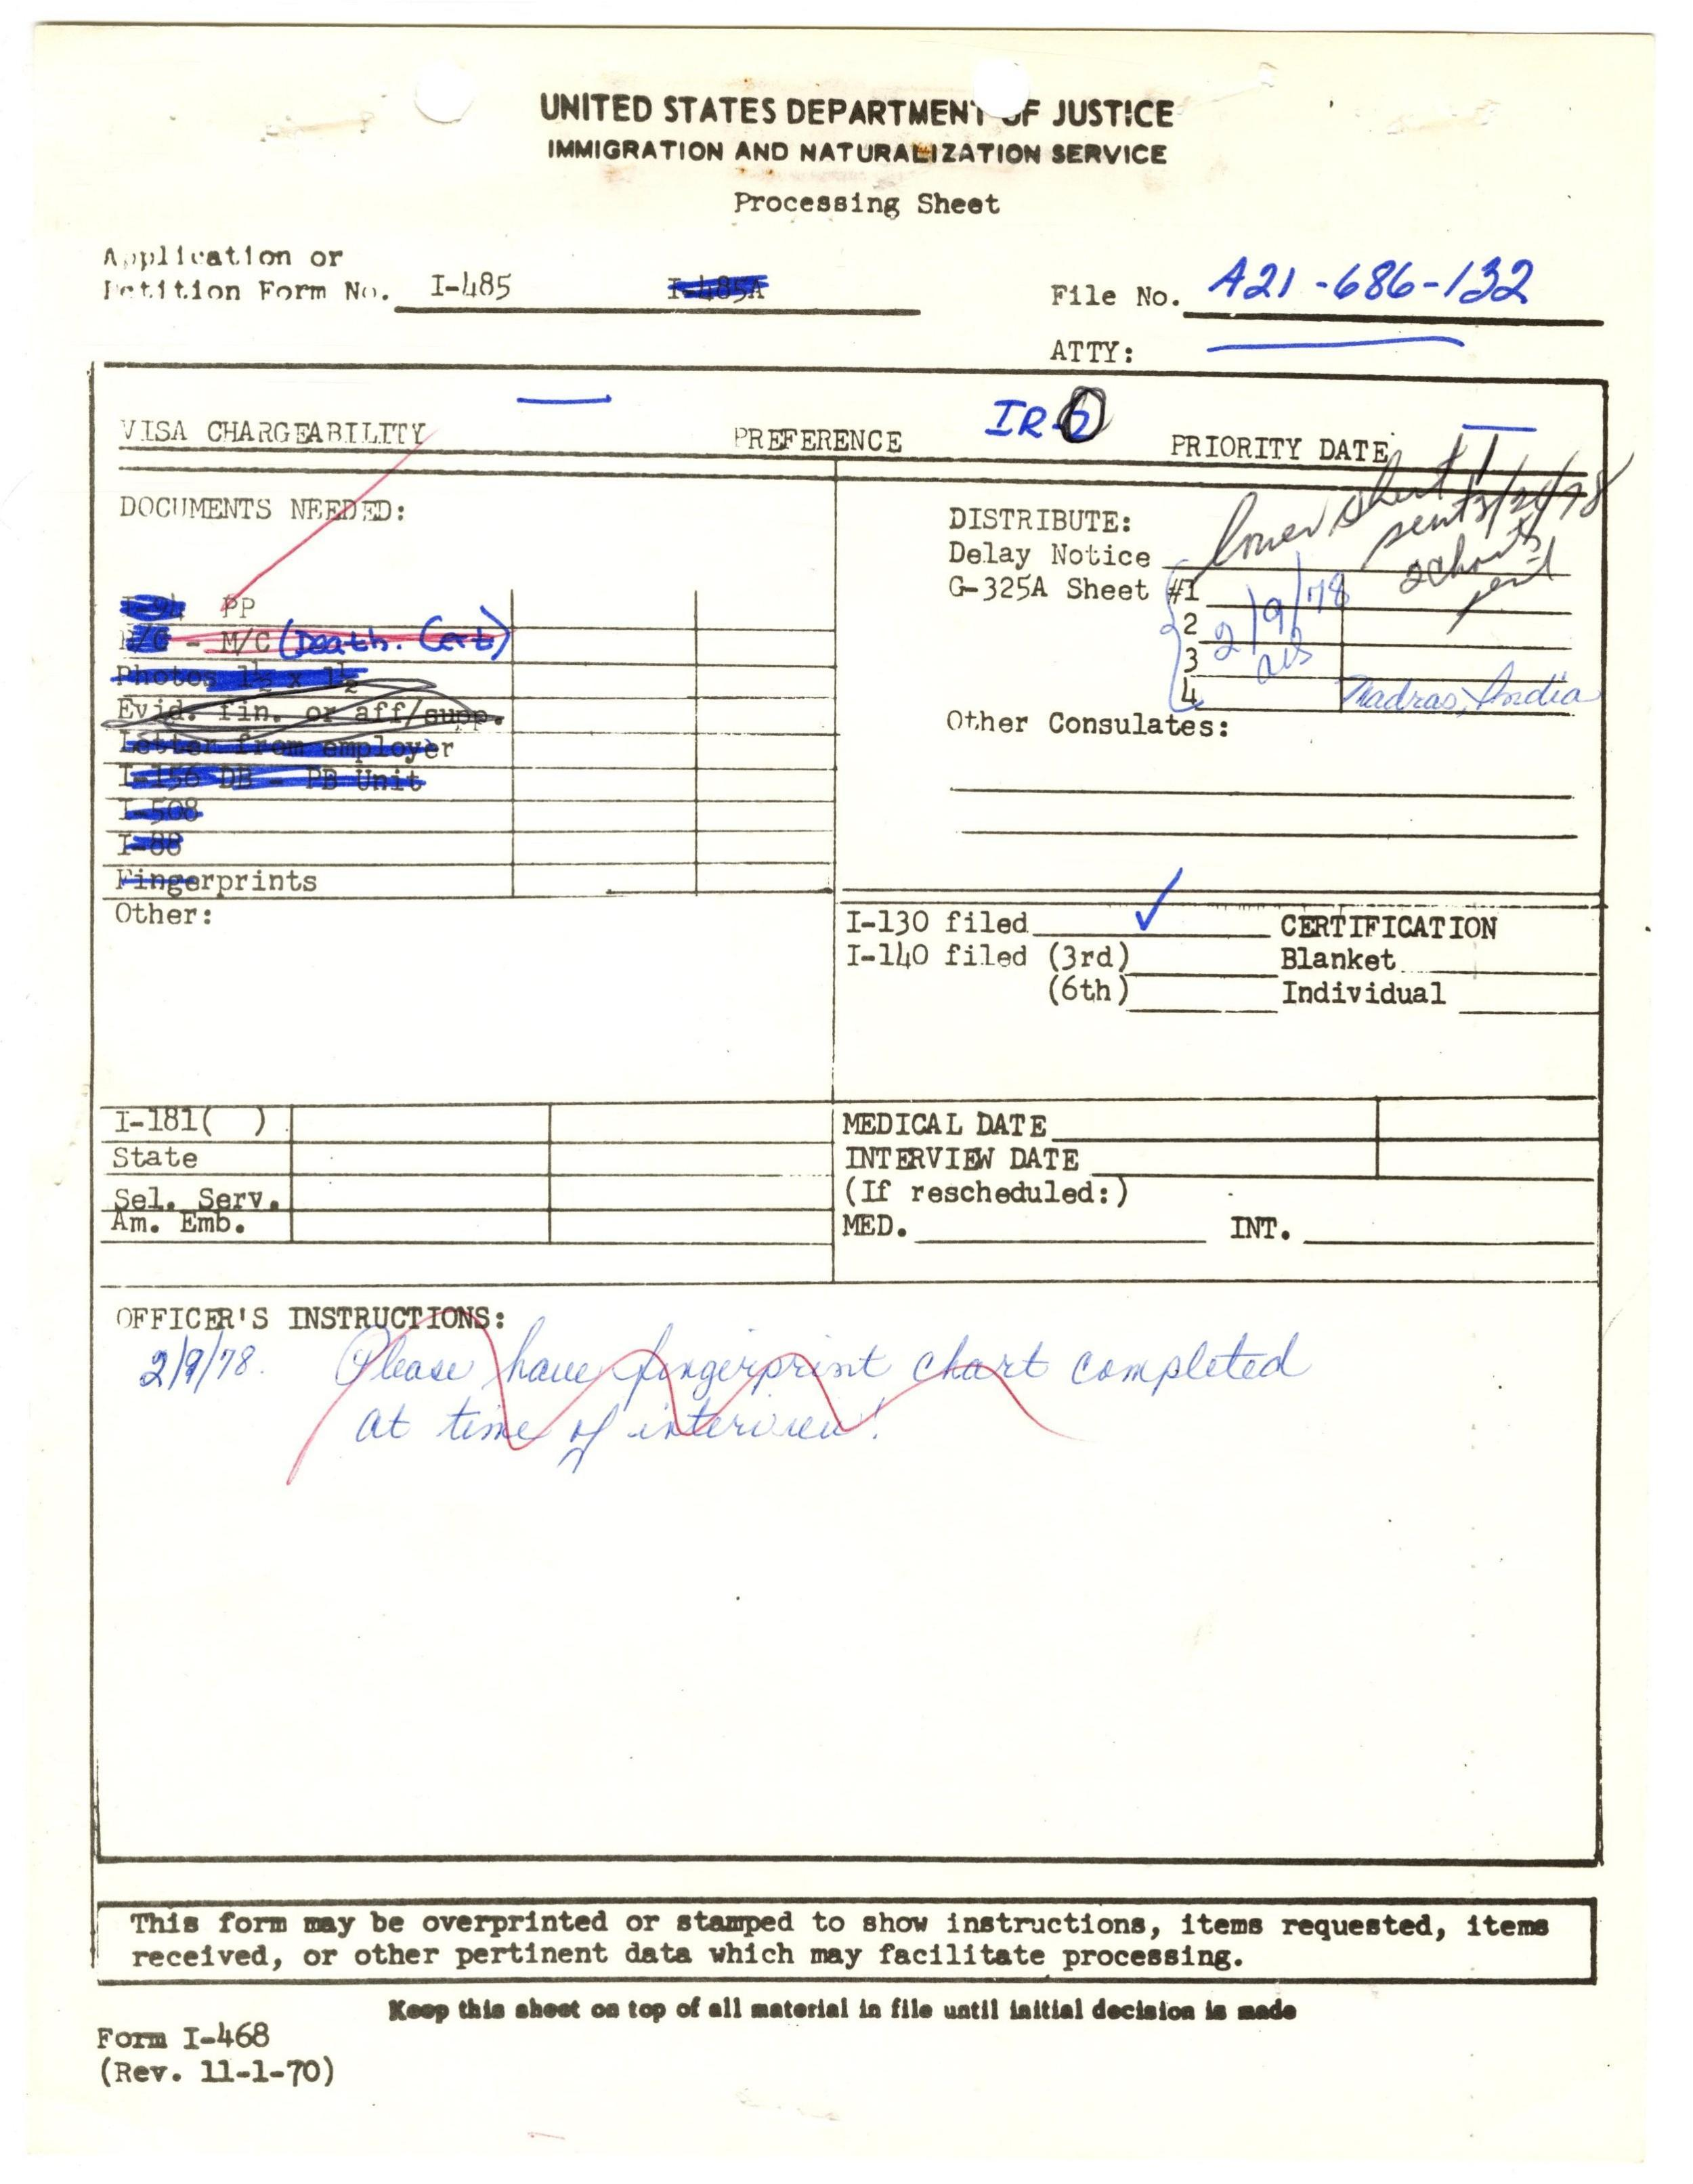 UNITED STATES DEPARTMENT OF JUSTICE
IMMIGRATION AND NATURALIZATION SERVICE
Processing Sheet
Application or
Petition Form No. I-485 I-485A
File No. A21-686-132
ATTY:
VISA CHARGEABILITY PREFERENCE IR- PRIORITY DATE
DOCUMENTS NEEDED:
I-94 PP
B/C - M/C (Death. Cert)
Photos 1½ x 1½
Evid. fin. or aff/supp.
Letter from employer
I-156 DB - PB Unit
I-508
I-88
Fingerprints
Other:
DISTRIBUTE:
Delay Notice
lower sheet
sent
G-325A Sheet #1
2
3
4
2/9/78
Madras, India
Other Consulates:
I-130 filed ✓ CERTIFICATION
I-140 filed (3rd) Blanket
(6th) Individual
I-181( )
State
Sel. Serv.
Am. Emb.
MEDICAL DATE
INTERVIEW DATE
(If rescheduled:)
MED. INT.
OFFICER'S INSTRUCTIONS:
2/9/78. Please have fingerprint chart completed
at time of interview!
This form may be overprinted or stamped to show instructions, items requested, items
received, or other pertinent data which may facilitate processing.
Keep this sheet on top of all material in file until initial decision is made
Form I-468
(Rev. 11-1-70)